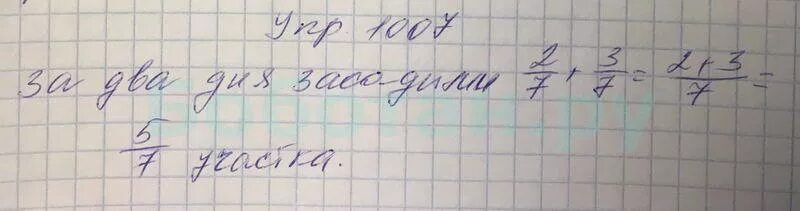 Упр. 1007
за два дня засадили 2/7 + 3/7 = 2+3/7 =
5/7 участка.